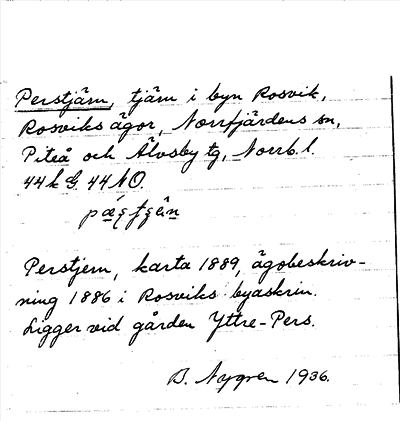 Perstjärn, tjärn i byn Rosvik,
Rosviks ägor, Norrfjärdens sn,
Piteå och Älvsby tg, Norrb. l.
44 k G. 44 NO.
Perstjern, karta 1889, ägobeskriv-
ning 1886 i Rosviks byaskrin.
Ligger vid gården Yttre-Pers.
B. Nygren 1936.